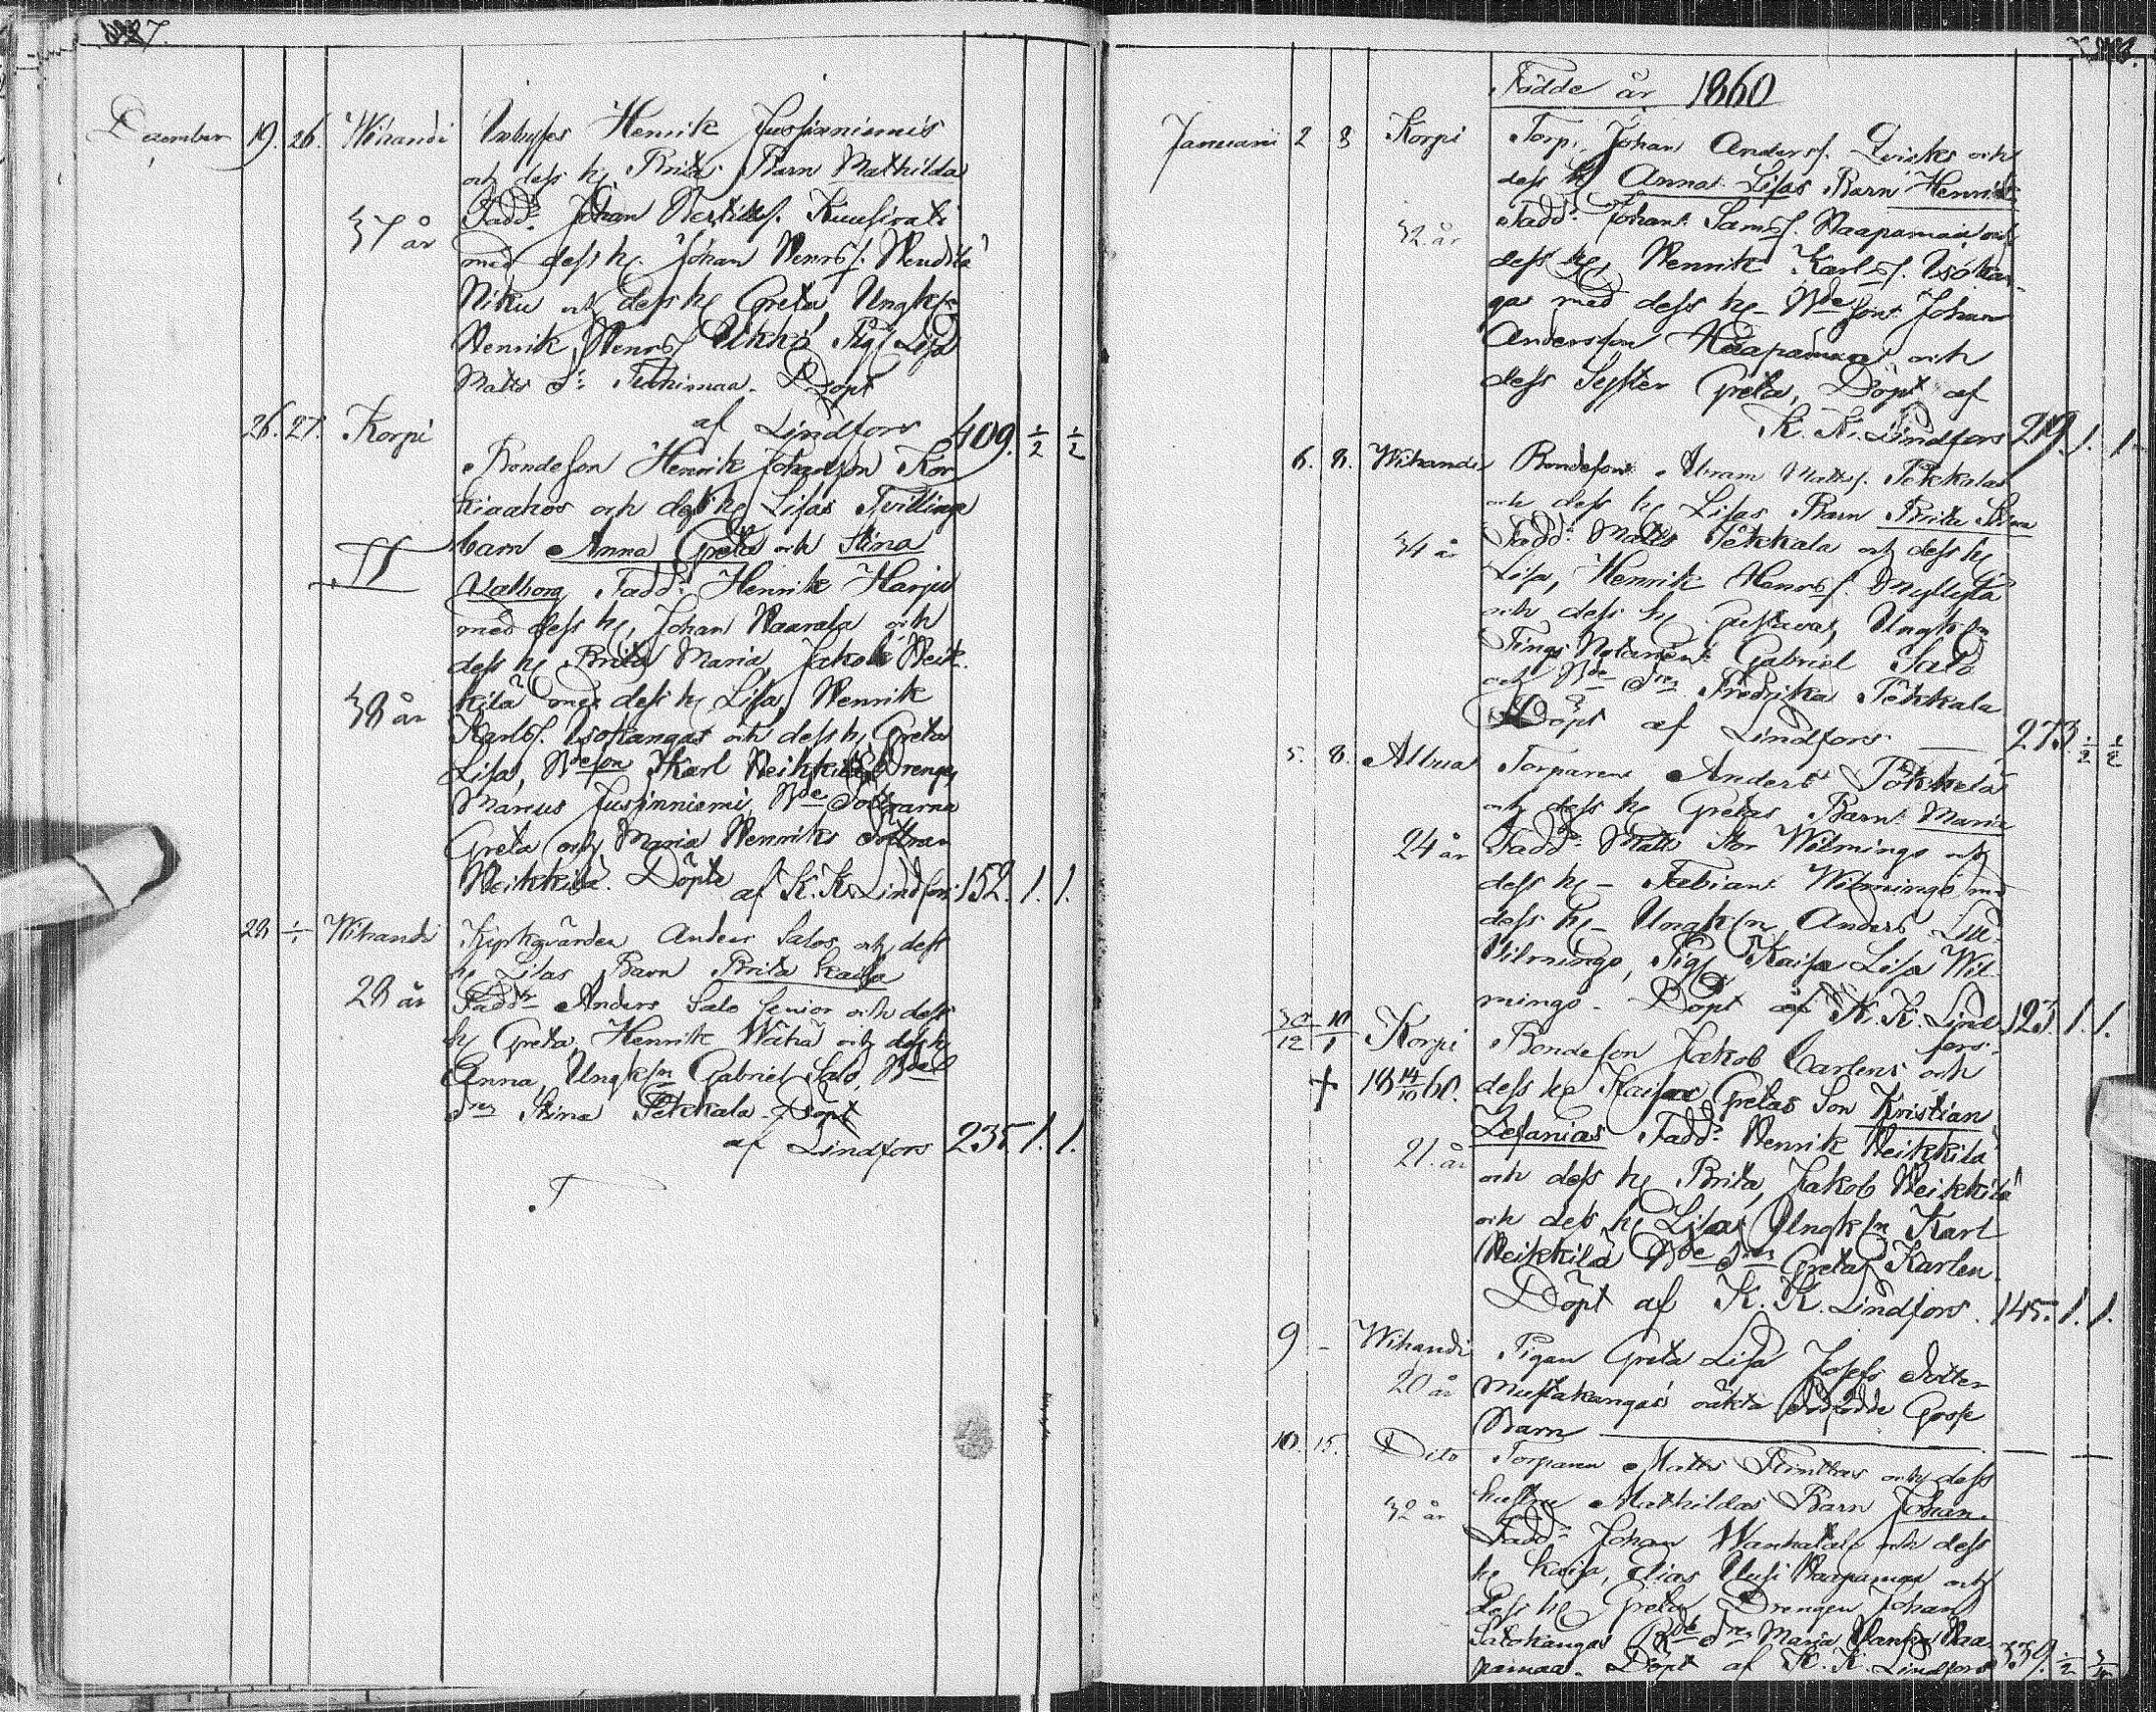 December 19. 26. Wihandi Henrik Jussinniemis
och dess h. Brita Barn Mathilda
Fadd. Johan Bertils. Kuusirati
37 år
med dess h. Johan Henrss. Wendelä
Niku och dess h Greta, Ungk.
Henrik Henrss. Ukko Pig. Lisa
Matts Tuhimaa. Döpt
af Lindfors 409. 1/2 1/2
26. 27. Korpi
Bondeson Henrik Johansson Kor
kiaahos och dess h Lisas Tvillinge
barn Anna Greta och Stina
Valborg Fadd. Henrik Harju
med dess h, Johan Waarala och
dess h Brita Maria, Jakob Heik-
38 år
kilä med dess h Lisa, Henrik
Karlss. Isokangas och dess h, Greta
Lisa, Bdeson Karl Heikkilä, Drenge
Marius Jussinniemi, Bde Döttrarna
Greta och Maria Henriks döttrar
Heikkilä. Döpte
af K. K. Lindfors 152. 1. 1.
28 ÷ Wihandi Anders Salos och dess
h Lisas Barn Brita Kaisa
28 år Fadd. Anders Salo Senior och dess
h Greta, Henrik Wähä och dess h
Anna, Ungk. Gabriel Salo, Bde
Stina Pekkala. Döpt
af Lindfors 235. 1. 1.
Födde år 1860
Januarii 2 8 Korpi Torp. Johan Anderss. Qvicks och
dess h Anna Lisas Barn Henrik
32 år Fadd. Johan Samss. Haapamaa och
dess h, Henrik Karlss. Isokan-
gas med dess h - Bdeson Johan
Andersson Haapamaa och
dess Syster Greta, Döpt af
K. K. Lindfors 219. 1. 1
6. 8. Wihandi Bondeson Abram Matts. Pekkalas
och dess h Lisas Barn Brita Stina
34 år Fadd. Matts Pekkala och dess h
Lisa, Henrik Henrss. Myllylä
och dess h Gustava, Ungk.
Tings Notarien Gabriel Salo
och Bde Fredrika Pekkala
Döpt af Lindfors 273 1/2 1/2
5. 8. Albua Torparen Anders Pökkeläs
och dess h Gretas Barn Maria
24 år Fadd. Matt Stor Wilmingo och
dess h - Fabian Wilmingo med
dess h - Ungk. Anders
Wilmingo, Pig. Kaisa Lisa Wil-
mingo. Döpt af K. K. Lind 123. 1. 1.
fors.
30/12 10/1 Korpi Bondeson Jakob Carlens och
+ 18 14/10 60. dess h Kaisa Gretas Son Kristian
Zefanias Fadd. Henrik Heikkilä
21. år
och dess h Brita, Jakob Heikkilä
och dess h Lisa, Ungk. Karl
Heikkilä Bde Greta Karlen.
Döpt af K. K. Lindfors. 145. 1. 1.
9 - Wihandi Pigan Greta Lisa Josefs dotter
20 år Mustakangas oäkta dödfödde Gosse
Barn
10. 15. Dito Torparen Matts och dess
hustru Mathildas Barn Johan.
32 år
Fadd. Johan Wanhatalo och dess
h Kaisa, Elias Uusi Haapamaa och
dess h Greta Drengen Johan
Salokangas Bde Maria Haa-
pamaa. Döpt af K. K. Lindfors 339. 1/2 3/4